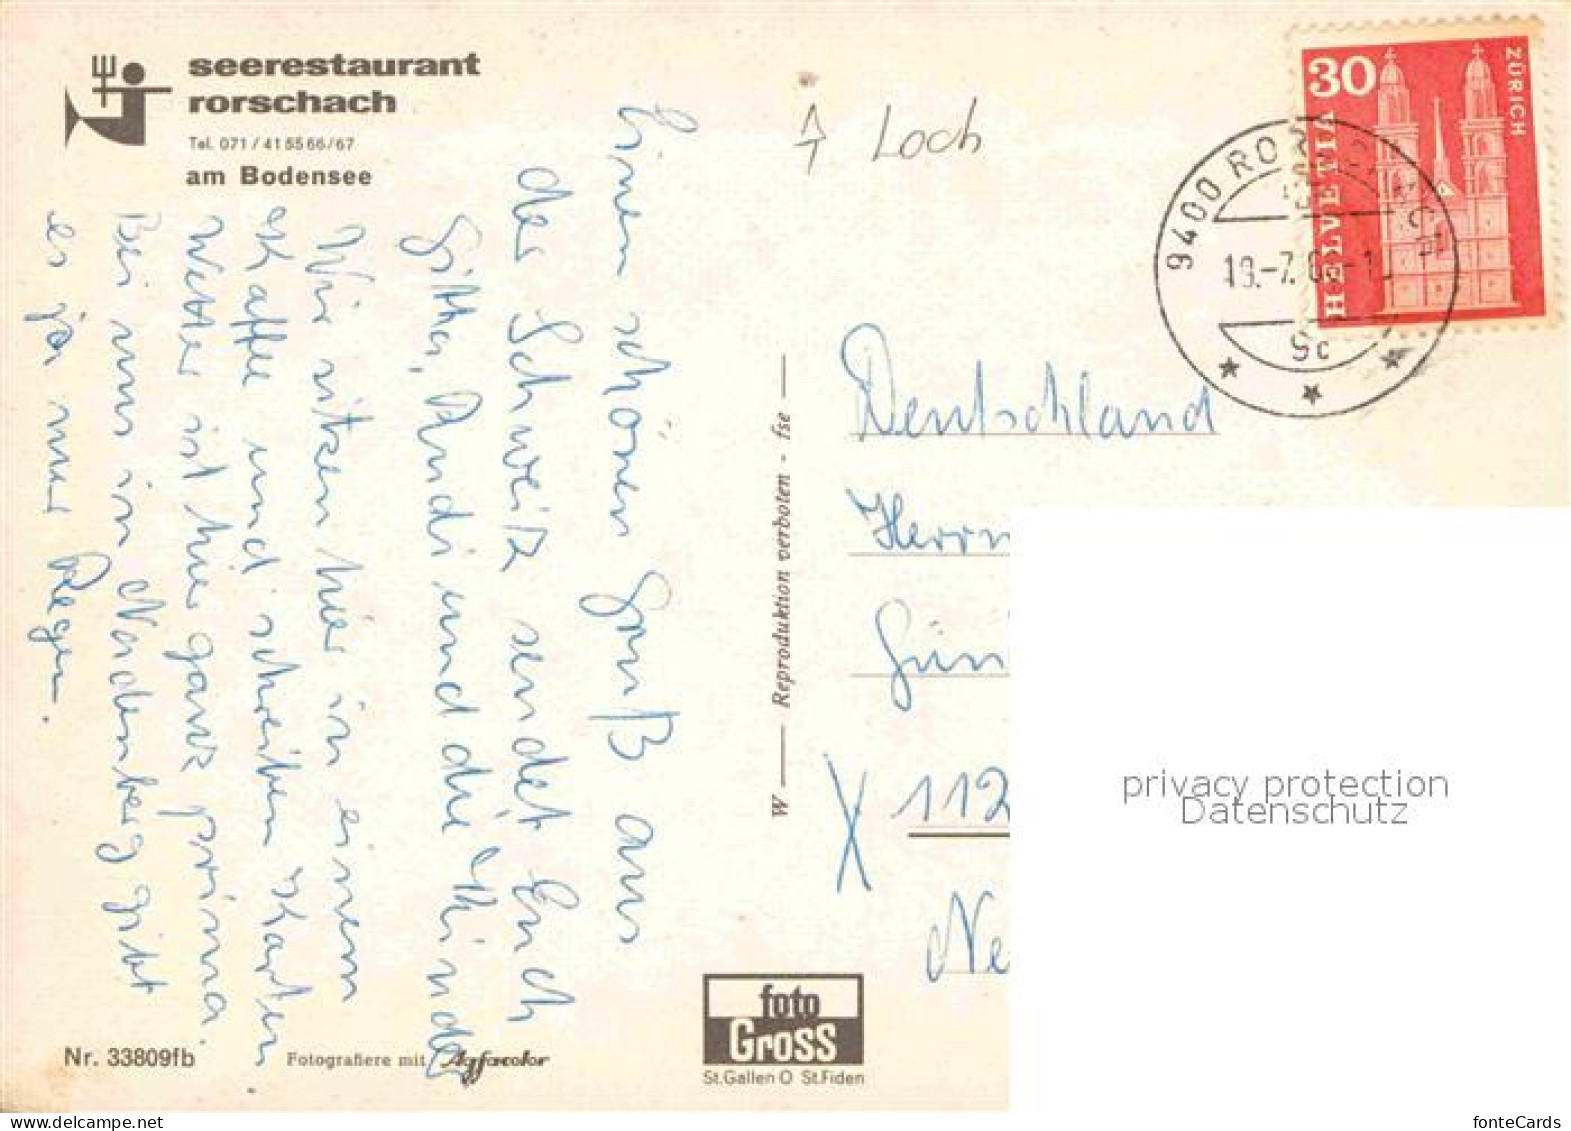 seerestaurant
rorschach
Tel. 071/41 55 66/67
am Bodensee
Loch
30
HELVETIA
ZÜRICH
9400 RORSCHACH
9c
Einen schönen Gruß aus
der Schweitz sendet Euch
Gitta, Rudi und die Kinder
Wir sitzen hier in einem
Kaffe und schreiben Karten
Wetter ist hier ganz prima.
Bei uns in Nordenberg gibt
es ja nur Regen.
W — Reproduktion verboten - fse —
Deutschland
Herrn
Gün
X 112
Ne
privacy protection
Datenschutz
foto
Gross
St.Gallen O St.Fiden
Nr. 33809fb
Fotografiere mit Agfacolor
fonteCards